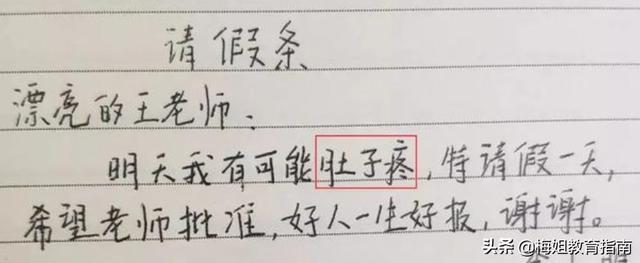 请假条
漂亮的王老师:
明天我有可能肚子疼,特请假一天,
希望老师批准,好人一生好报,谢谢。
头条 @梅姐教育指南